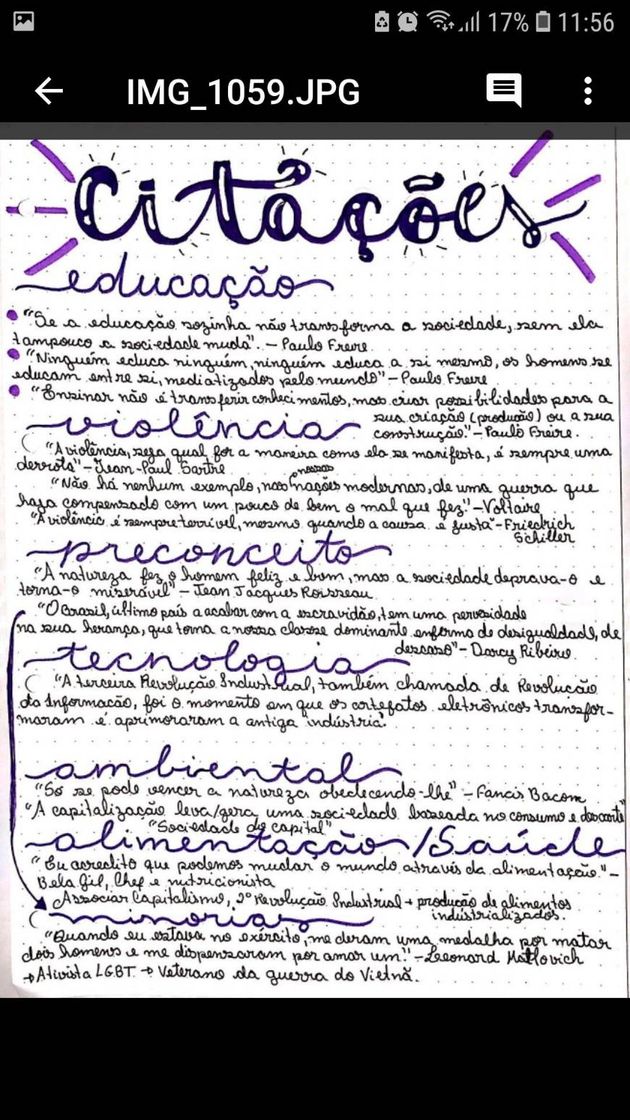 17% 11:56
IMG_1059.JPG
citações
educação
"Se a educação sozinha não transforma a sociedade, sem ela
tampouco a sociedade muda". - Paulo Freire.
"Ninguém educa ninguém, ninguém educa a si mesmo, os homens se
educam entre si, mediatizados pelo mundo" - Paulo Freire
"Ensinar não é transferir conhecimentos, mas criar possibilidades para a
sua criação (produção) ou a sua
construção." - Paulo Freire.
violência
"A violência, seja qual for a maneira como ela se manifesta, é sempre uma
derrota" - Jean-Paul Sartre
"Não há nenhum exemplo, nas nossas nações modernas, de uma guerra que
haja compensado com um pouco de bem o mal que fez." - Voltaire
"A violência é sempre terrível, mesmo quando a causa é justa" - Friedrich
Schiller
preconceito
"A natureza fez o homem feliz e bom, mas a sociedade deprava-o e
torna-o miserável" - Jean Jacques Rousseau
"O Brasil, último país a acabar com a escravidão, tem uma perversidade
na sua herança, que torna a nossa classe dominante enferma de desigualdade, de
descaso" - Darcy Ribeiro
tecnologia
"A terceira Revolução Industrial, também chamada de Revolução
da Informação, foi o momento em que os artefatos eletrônicos transfor-
maram e aprimoraram a antiga indústria.
ambiental
"Só se pode vencer a natureza obedecendo-lhe" - Francis Bacom
"A capitalização leva/gera uma sociedade baseada no consumo e descarte"
"Sociedade do capital"
alimentação/Saúde
"Eu acredito que podemos mudar o mundo através da alimentação." -
Bela Gil, Chef e nutricionista
Associar Capitalismo, 2º Revolução Industrial + produção de alimentos
industrializados.
minorias
"Quando eu estava no exército, me deram uma medalha por matar
dois homens e me dispensaram por amar um." - Leonard Matlovich
→ Ativista LGBT → Veterano da guerra do Vietnã.